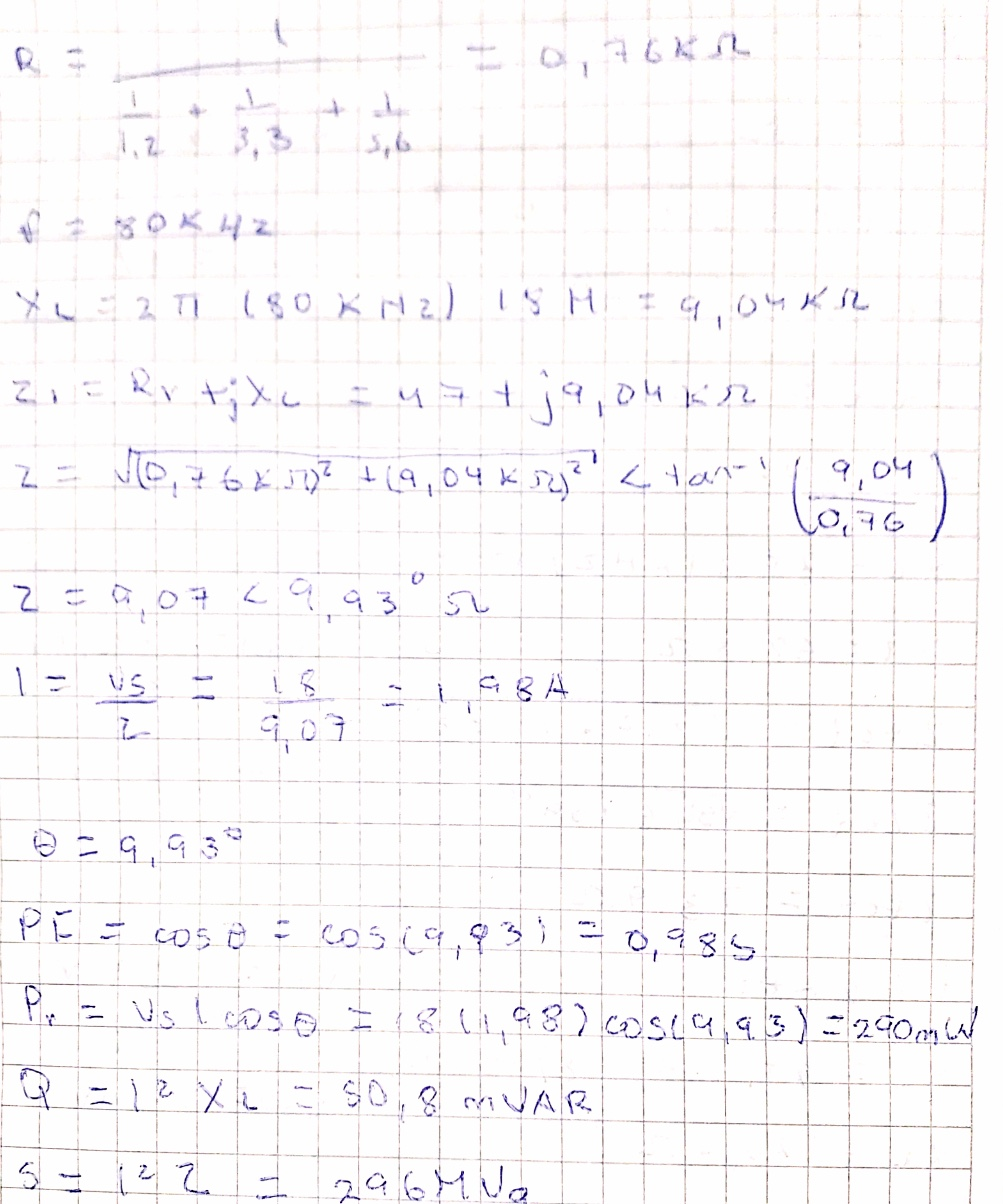 R = 1 / (1/1,2 + 1/3,3 + 1/5,6) = 0,76KΩ
f = 80KHz
XL = 2π (80KHz) 18H = 9,04KΩ
Z1 = Rr + jXL = 47 + j9,04KΩ
Z = √(0,76KΩ)² + (9,04KΩ)² < tan-1 (9,04/0,76)
Z = 9,07 < 9,93° Ω
I = VS/Z = 18/9,07 = 1,98A
θ = 9,93°
PF = cosθ = cos(9,93) = 0,985
Pr = Vs I cosθ = 18(1,98)cos(9,93) = 290mW
Q = I² XL = 50,8 mVAR
S = I² Z = 296MVa